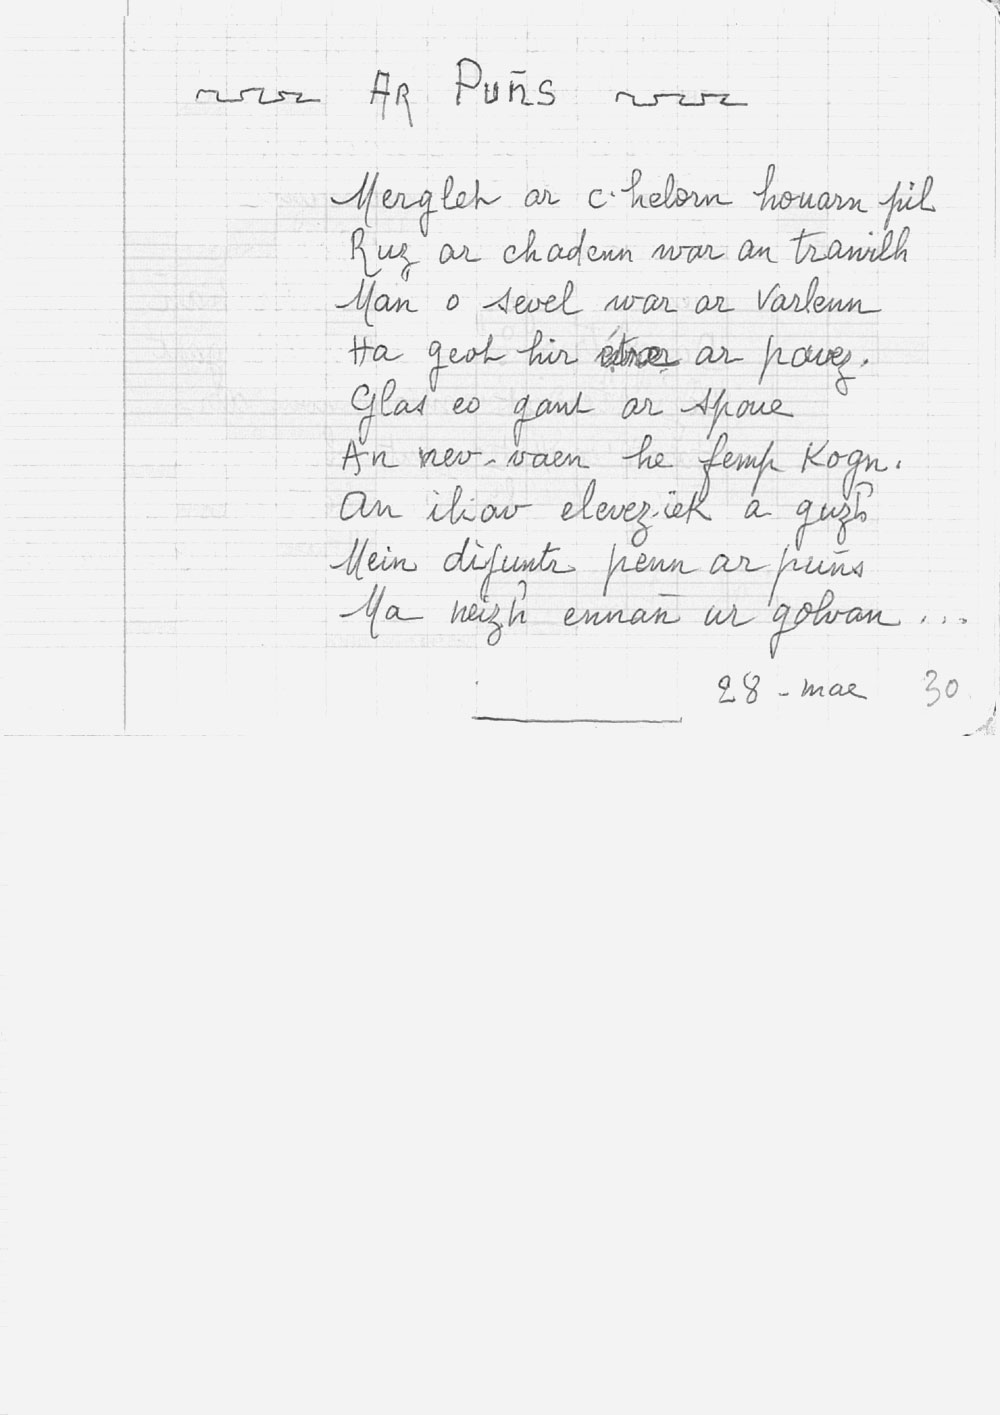 AR PUÑS
Merglet ar c'helorn houarn pil
Ruz ar chadenn war an trawilh
Man o sevel war ar varlenn
Ha geot hir etre ar pavez.
Glas eo gant ar spoue
An nev-vaen he femp kogn.
An iliav elevez-iek a guzh
Mein difuntr penn ar puñs
Ma neizh ennañ ur golvan ...
28 - mae 30